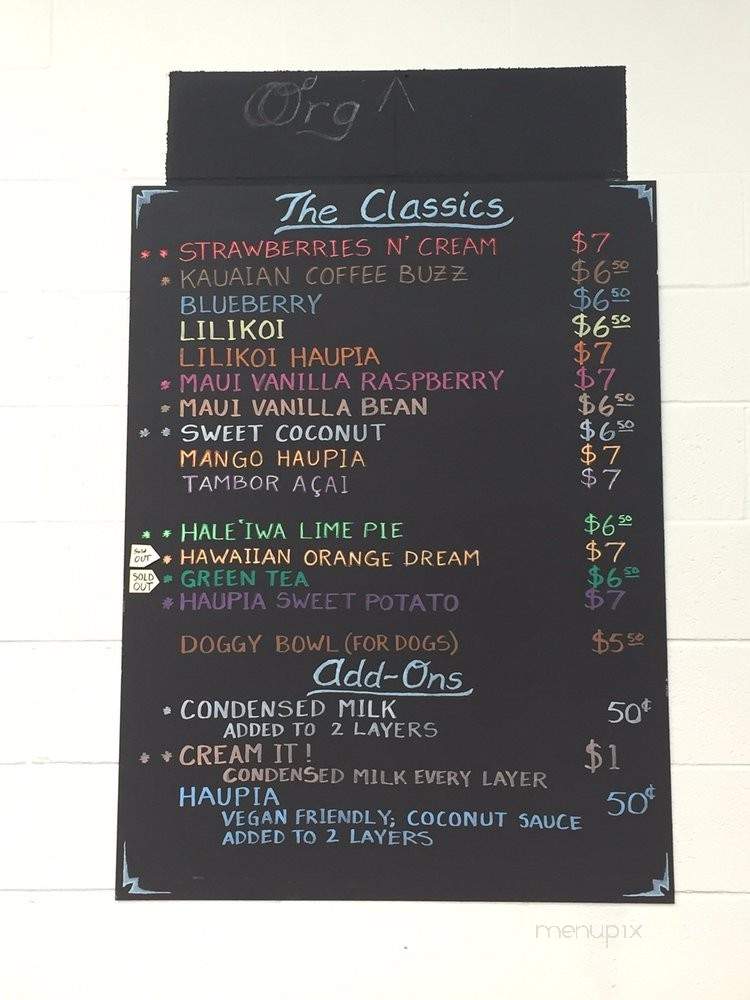 Org
The Classics
* * STRAWBERRIES N' CREAM $7
* KAUAIAN COFFEE BUZZ $6.50
BLUEBERRY $6.50
LILIKOI $6.50
LILIKOI HAUPIA $7
* MAUI VANILLA RASPBERRY $7
* MAUI VANILLA BEAN $6.50
* * SWEET COCONUT $6.50
MANGO HAUPIA $7
TAMBOR AÇAI $7
* * HALE'IWA LIME PIE $6.50
SOLD OUT * HAWAIIAN ORANGE DREAM $7
SOLD OUT * GREEN TEA $6.50
* HAUPIA SWEET POTATO $7
DOGGY BOWL (FOR DOGS) $5.50
Add-Ons
* CONDENSED MILK 50¢
ADDED TO 2 LAYERS
* * CREAM IT! $1
CONDENSED MILK EVERY LAYER
HAUPIA 50¢
VEGAN FRIENDLY; COCONUT SAUCE
ADDED TO 2 LAYERS
menupix